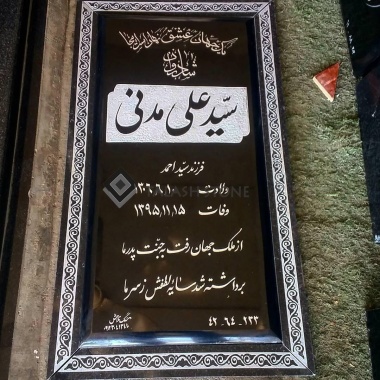 یک جهان عشق نهان است اینجا
شادروان
سیّد علی مدنی
فرزند سید احمد
ولادت ۱۳۰۶.۶.۱۰
وفات ۱۳۹۵.۱۱.۱۵
از ملک جهان رفت به جنّت پدر ما
برداشته شد سایه لطفش ز سر ما
۴۲-۶۴-۲۳۳